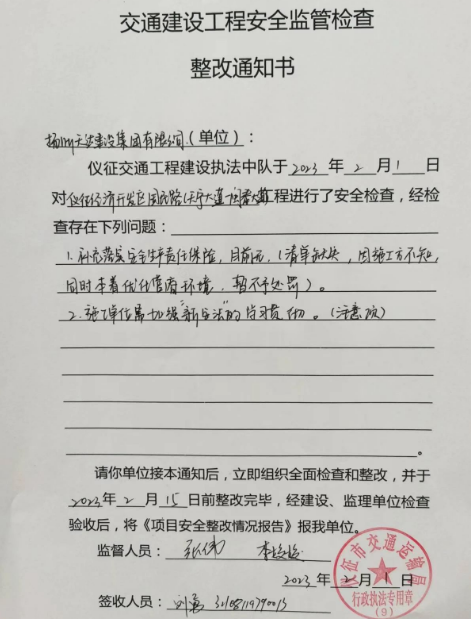 交通建设工程安全监管检查
整改通知书
扬州天达建设集团有限公司（单位）：
仪征交通工程建设执法中队于2023年2月1日
对仪征经济开发区闽泰大道工程进行了安全检查，经检
查存在下列问题：
1.补充落实安全生产责任保险，目前无，（清单缺失，因施工方不知，
同时本着优化营商环境，暂不予处罚）。
2.施工单位需加强"新安法"的学习贯彻。（注意项）
。
请你单位接本通知后，立即组织全面检查和整改，并于
2023年2月15日前整改完毕，经建设、监理单位检查
验收后，将《项目安全整改情况报告》报我单位。
监督人员：张伟
2023年2月1日
签收人员：刘
仪征市交通运输局
行政执法专用章
（9）